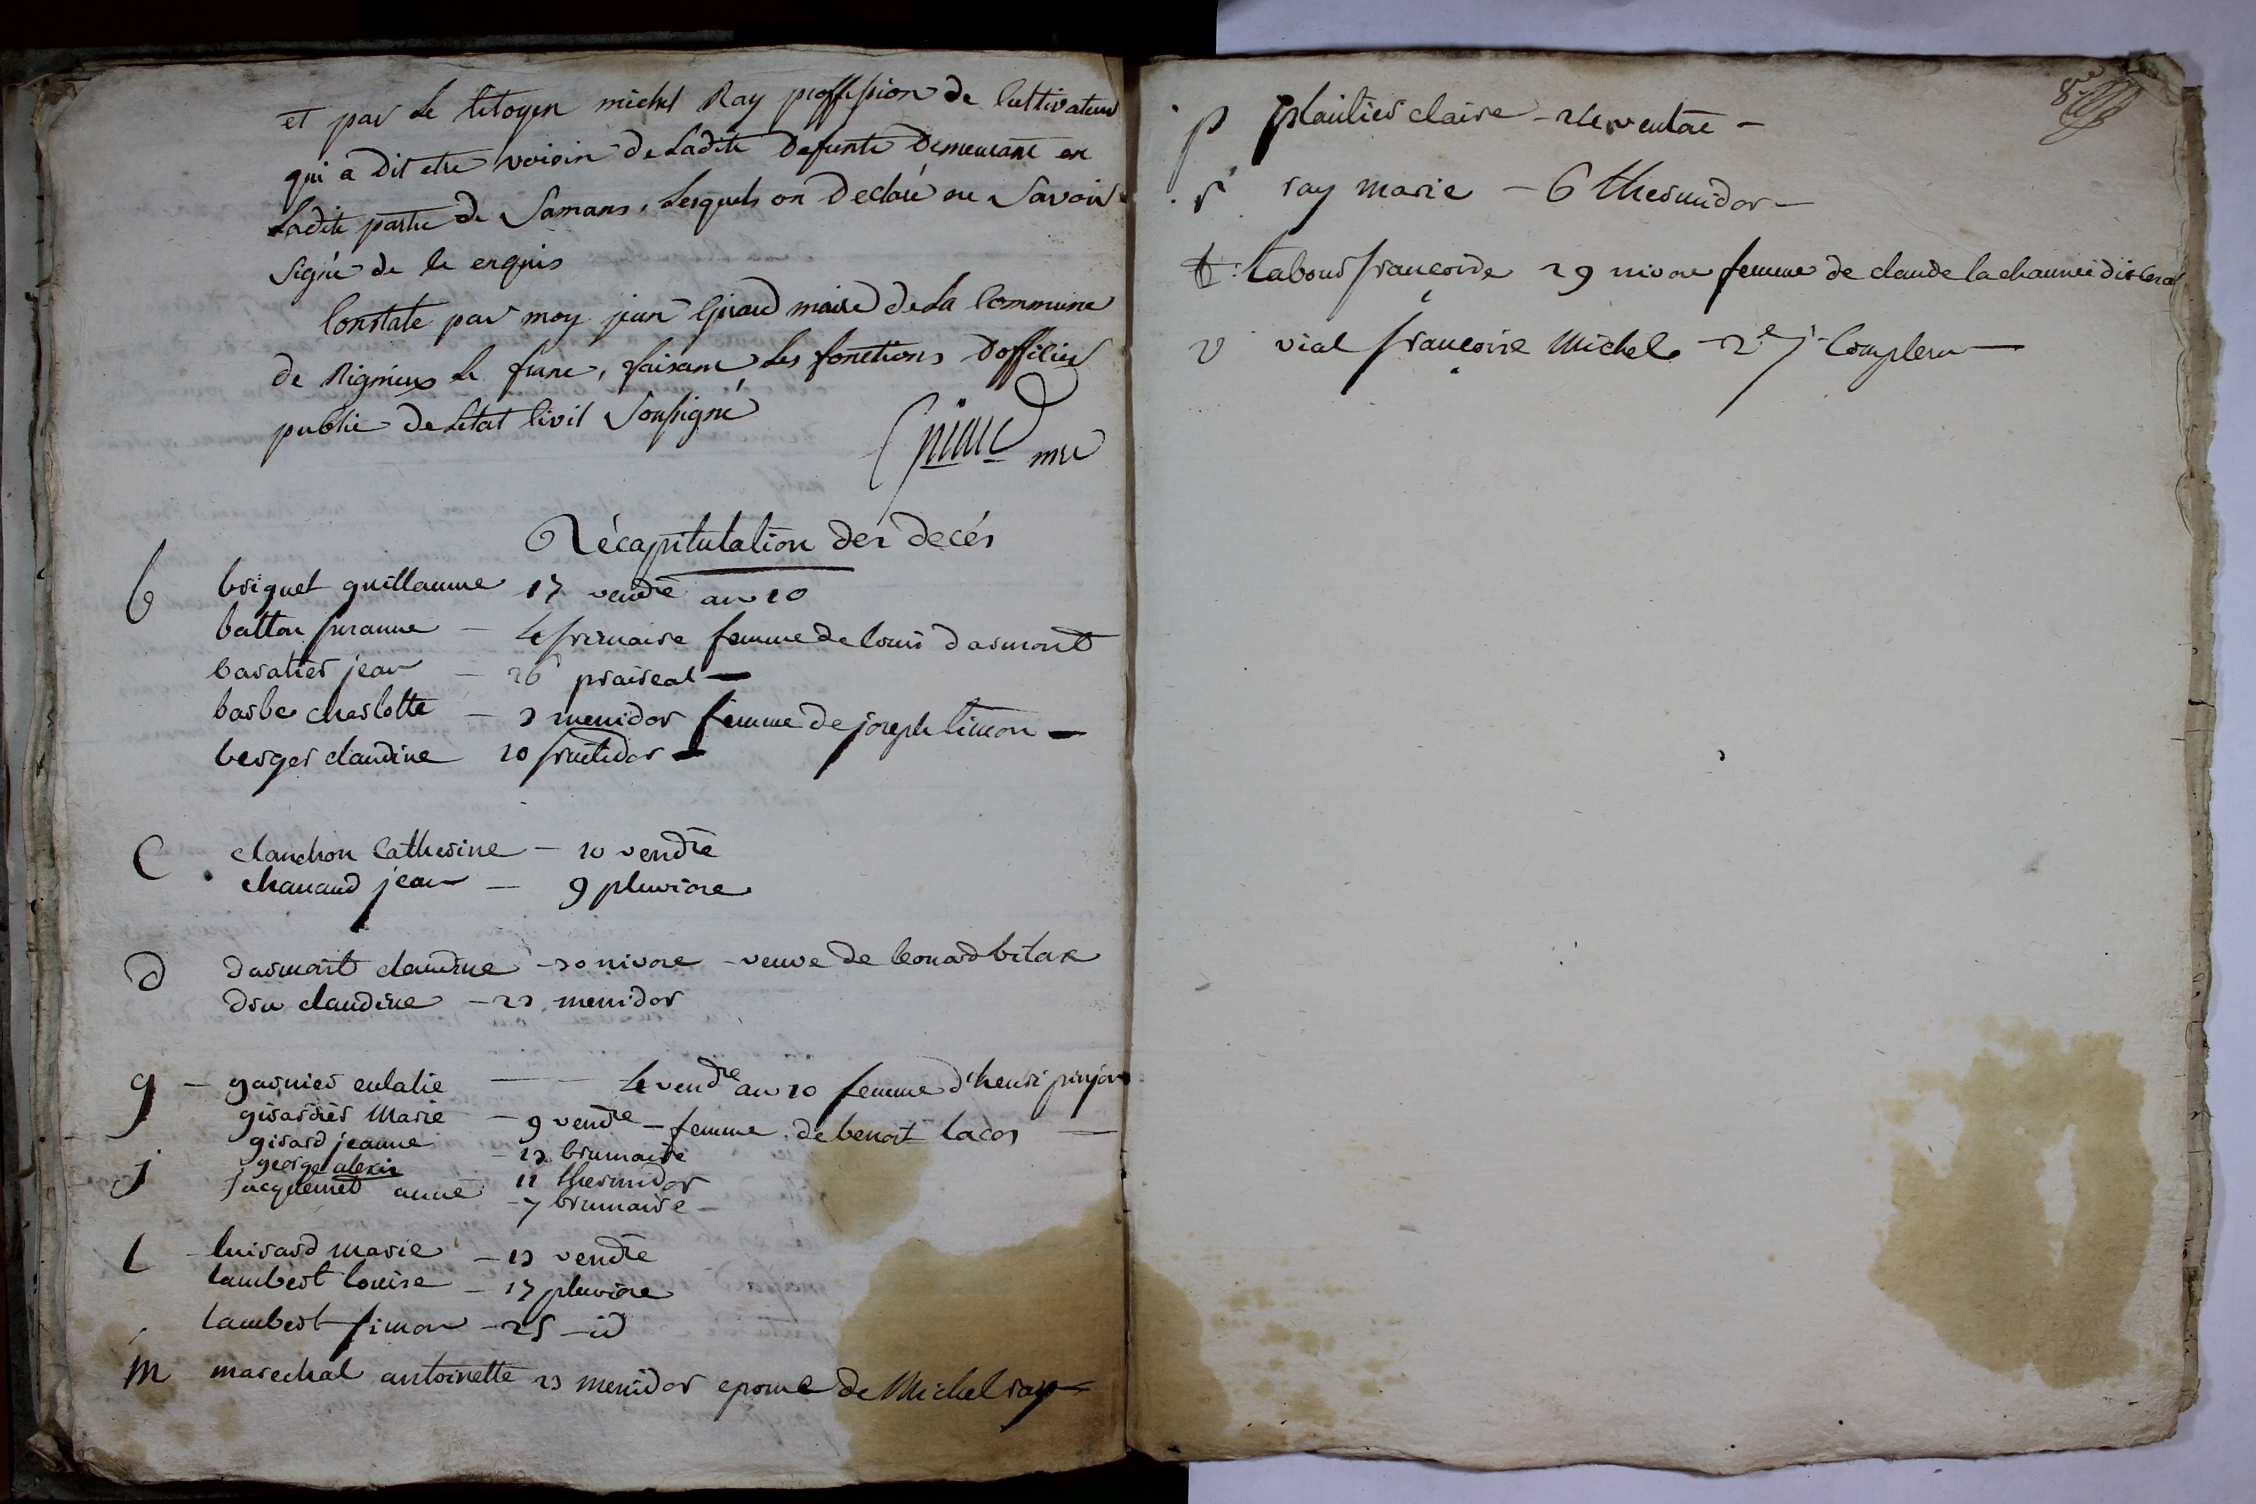 et par le Citoyen michel Ray proffesion de Cultivateur
qui a dit etre voisin de Ladite Defunte Demeurant en
Ladite partie de Samans, Lesquels on Declaré ne Savoir
Signé de le enquis
Constaté par moy jean Giraud maire de La Commune
de Rignieux le franc, faisant Les fonctions Dofficier
public De Létat Civil Sousigné
Giraud mre
Récapitulation des decés
b briguet guillaume 17 vendre an 10
batton suzanne - 4 frimaire femme de louis darmont
baratier jean - 26 praireal -
barbe charlotte - 3 mesidor femme de joseph simon -
berger claudine 10 fructidor -
C clanchon Catherine - 10 vendre
chanaud jean - 9 pluviose
D darmont claudine - 30 nivose - veuve de leonard bitaz
dru claudine - 23 messidor
g - garnier eulalie - 4 vendre an 10 femme d'henri pinjon
girardier Marie - 9 vendre - femme de benoit lacos -
girard jeanne - 13 brumaire
george alexis 11 thermidor
j jacquemet anne - 7 brumaire -
L - luisard marie - 13 vendre
lambert louise - 17 pluviose
lambert simon - 25 - id
m marechal antoinette 23 messidor epouse de Michel ray
8me
p plantier claire - 24 ventose -
r ray marie - 6 thermidor -
t tabour francoise 29 nivose femme de claude la chaumee dit
v vial francoise Michele - 2e j. Complem -